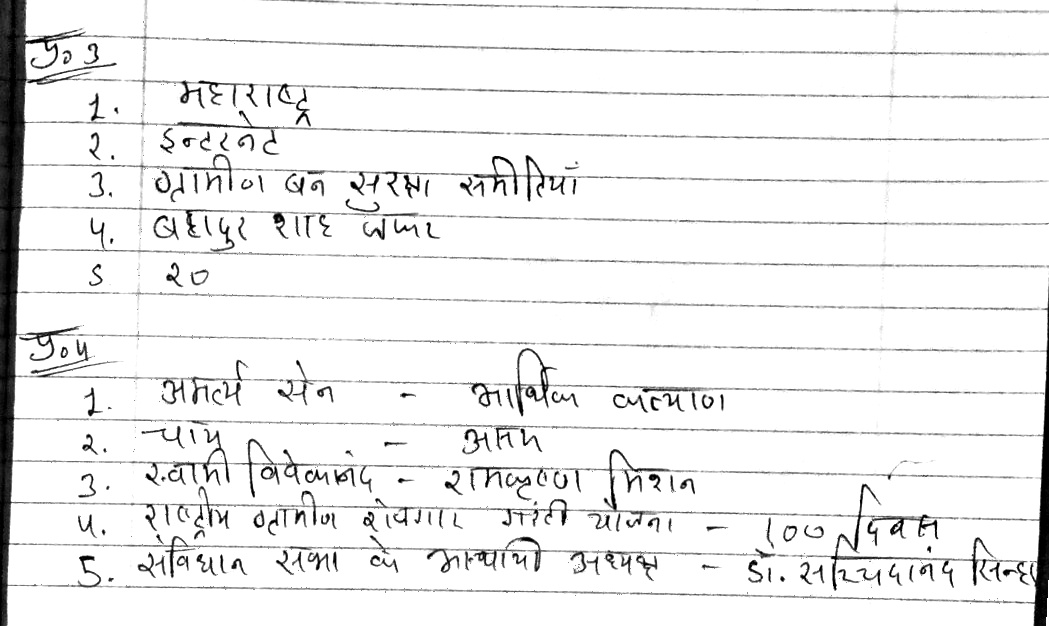 प्र०3
1. महाराष्ट्र
2. इन्टरनेट
3. ग्रामीण बन सुरक्षा समीतियाँ
4. बहादुर शाह जफर
5 20
प्र०4
1. अमर्त्य सेन - आर्थिक कल्याण
2. चाय - असम
3. स्वामी विवेकानंद - रामकृष्ण मिशन
4. राष्ट्रीय ग्रामीण रोजगार गारंटी योजना - 100 दिवस
5. संविधान सभा के अस्थायी अध्यक्ष - डॉ. सच्चिदानंद सिन्हा